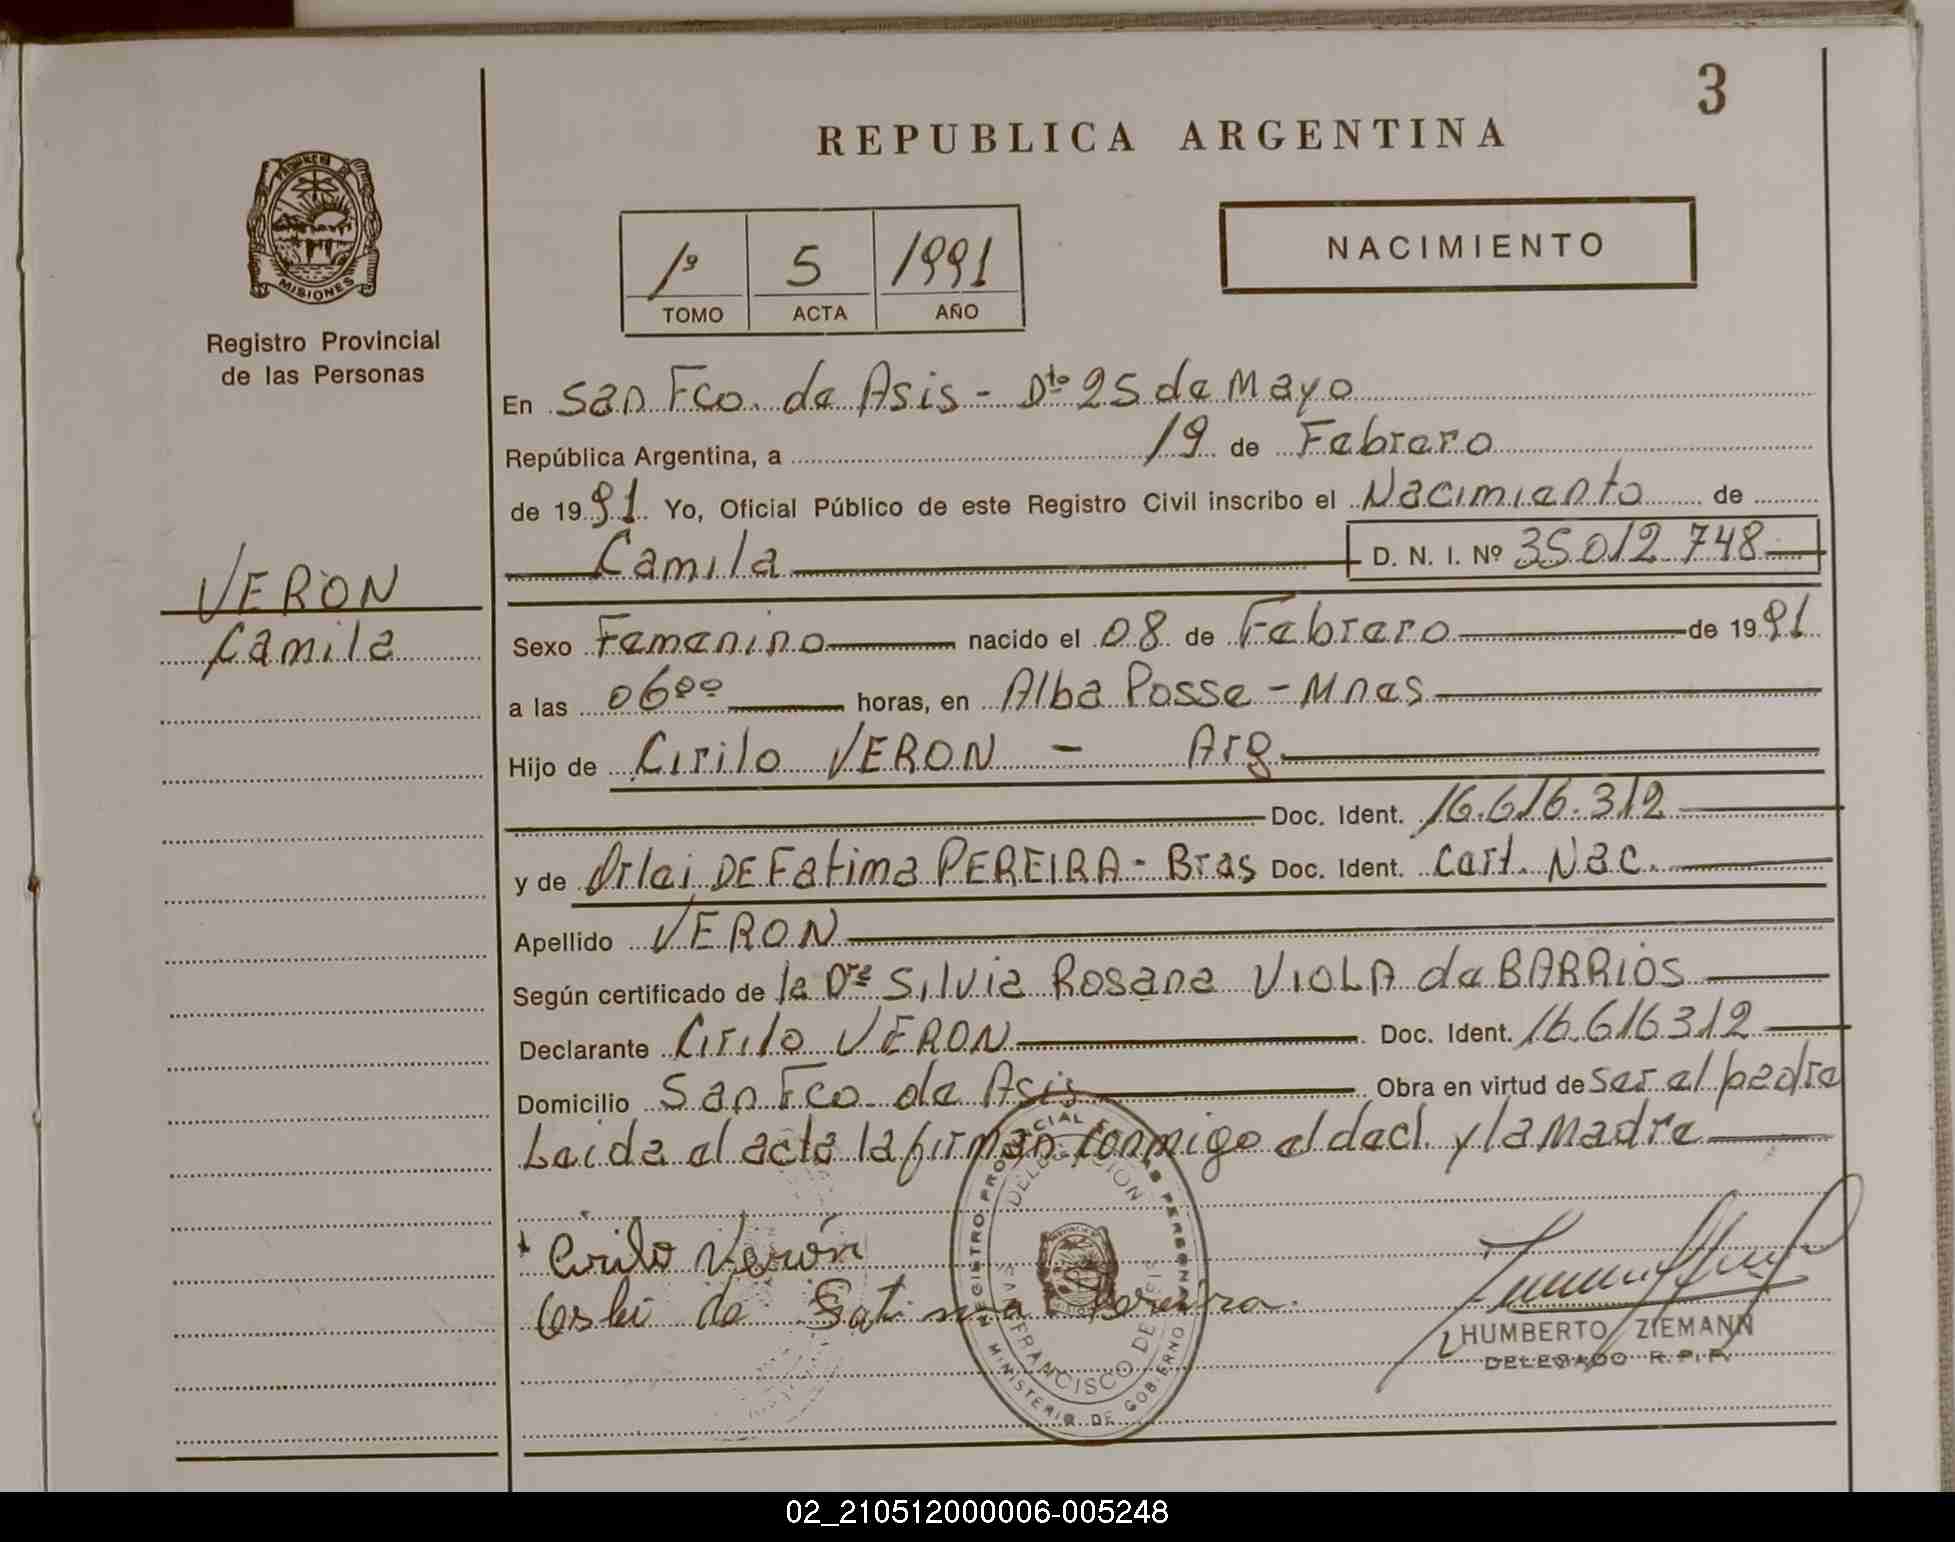 3
REPUBLICA ARGENTINA
1º 5 1991
TOMO ACTA AÑO
NACIMIENTO
MISIONES
Registro Provincial
de las Personas
VERON
Camila
En San Fco. de Asis - Dto 25 de Mayo
República Argentina, a 19 de Febrero
de 1991 Yo, Oficial Público de este Registro Civil inscribo el Nacimiento de
Camila D. N. I. Nº 35012 748
Sexo Femenino nacido el 08 de Febrero de 1991
a las 06ºº horas, en Alba Posse - Mnes
Hijo de Cirilo VERON - Arg
Doc. Ident. 16.616.312
y de Orlei DE Fatima PEREIRA - Bras Doc. Ident. Cart. Nac.
Apellido VERON
Según certificado de la Dra Silvia Rosana VIOLA de BARRIOS
Declarante Cirilo VERON Doc. Ident. 16.616312
Domicilio San Fco de Asis Obra en virtud de ser el padre
Leida el acta la firman conmigo el decl. y la Madre
Cirilo Verón
de Fatima Pereira.
REGISTRO PROVINCIAL DE LAS PERSONAS
DELEGACION
SAN FRANCISCO DE ASIS
MINISTERIO DE GOBIERNO
HUMBERTO ZIEMANN
DELEGADO R. P. P.
02_210512000006-005248